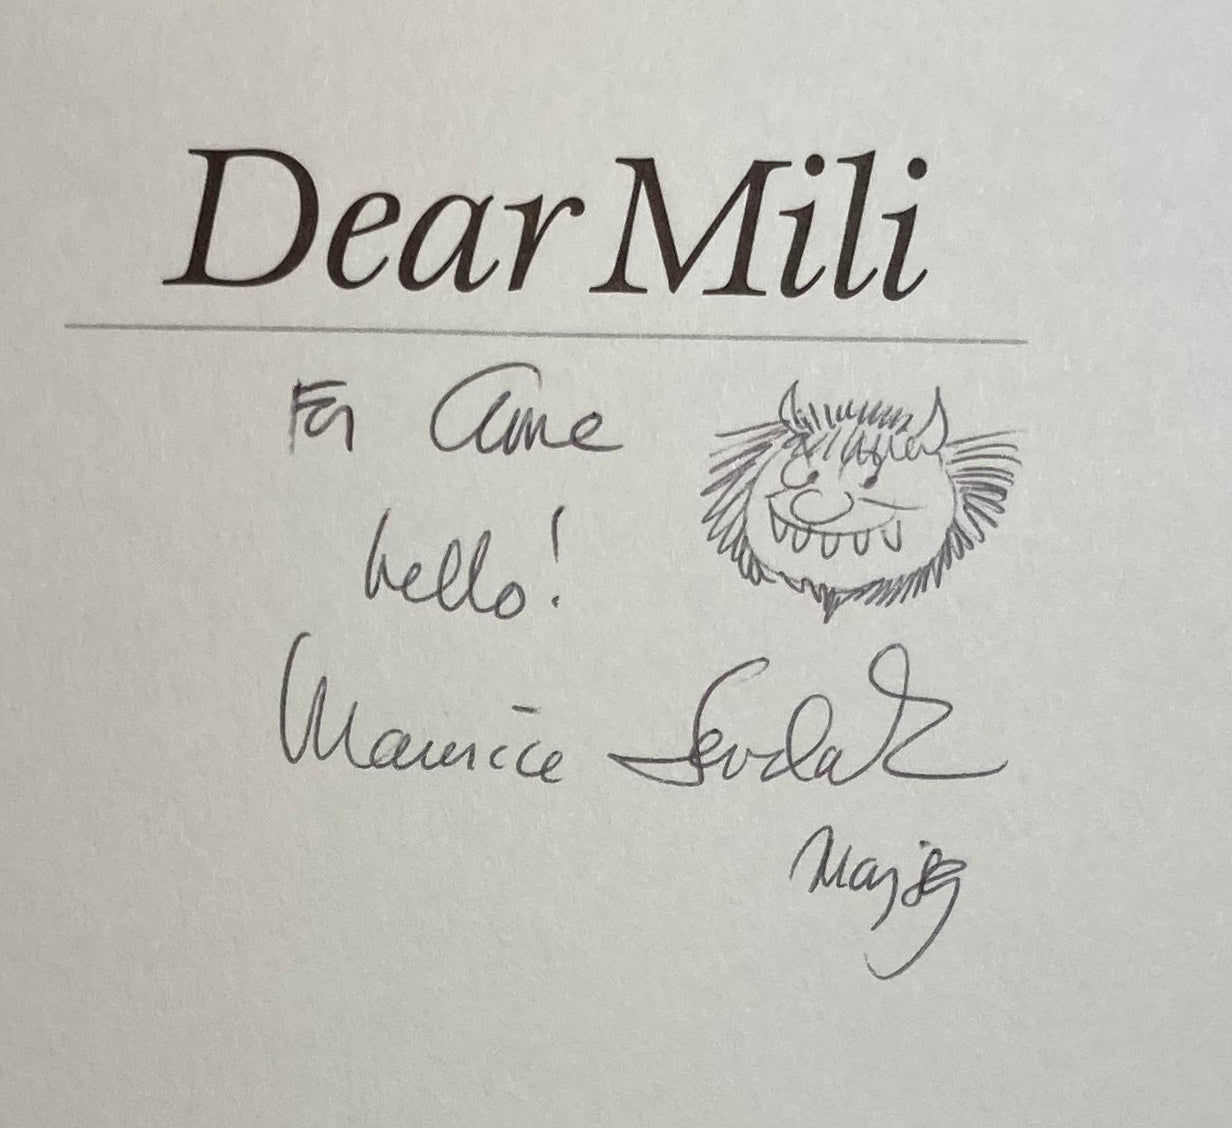 Dear Mili
For Anne
hello!
Maurice Sendak
May '89